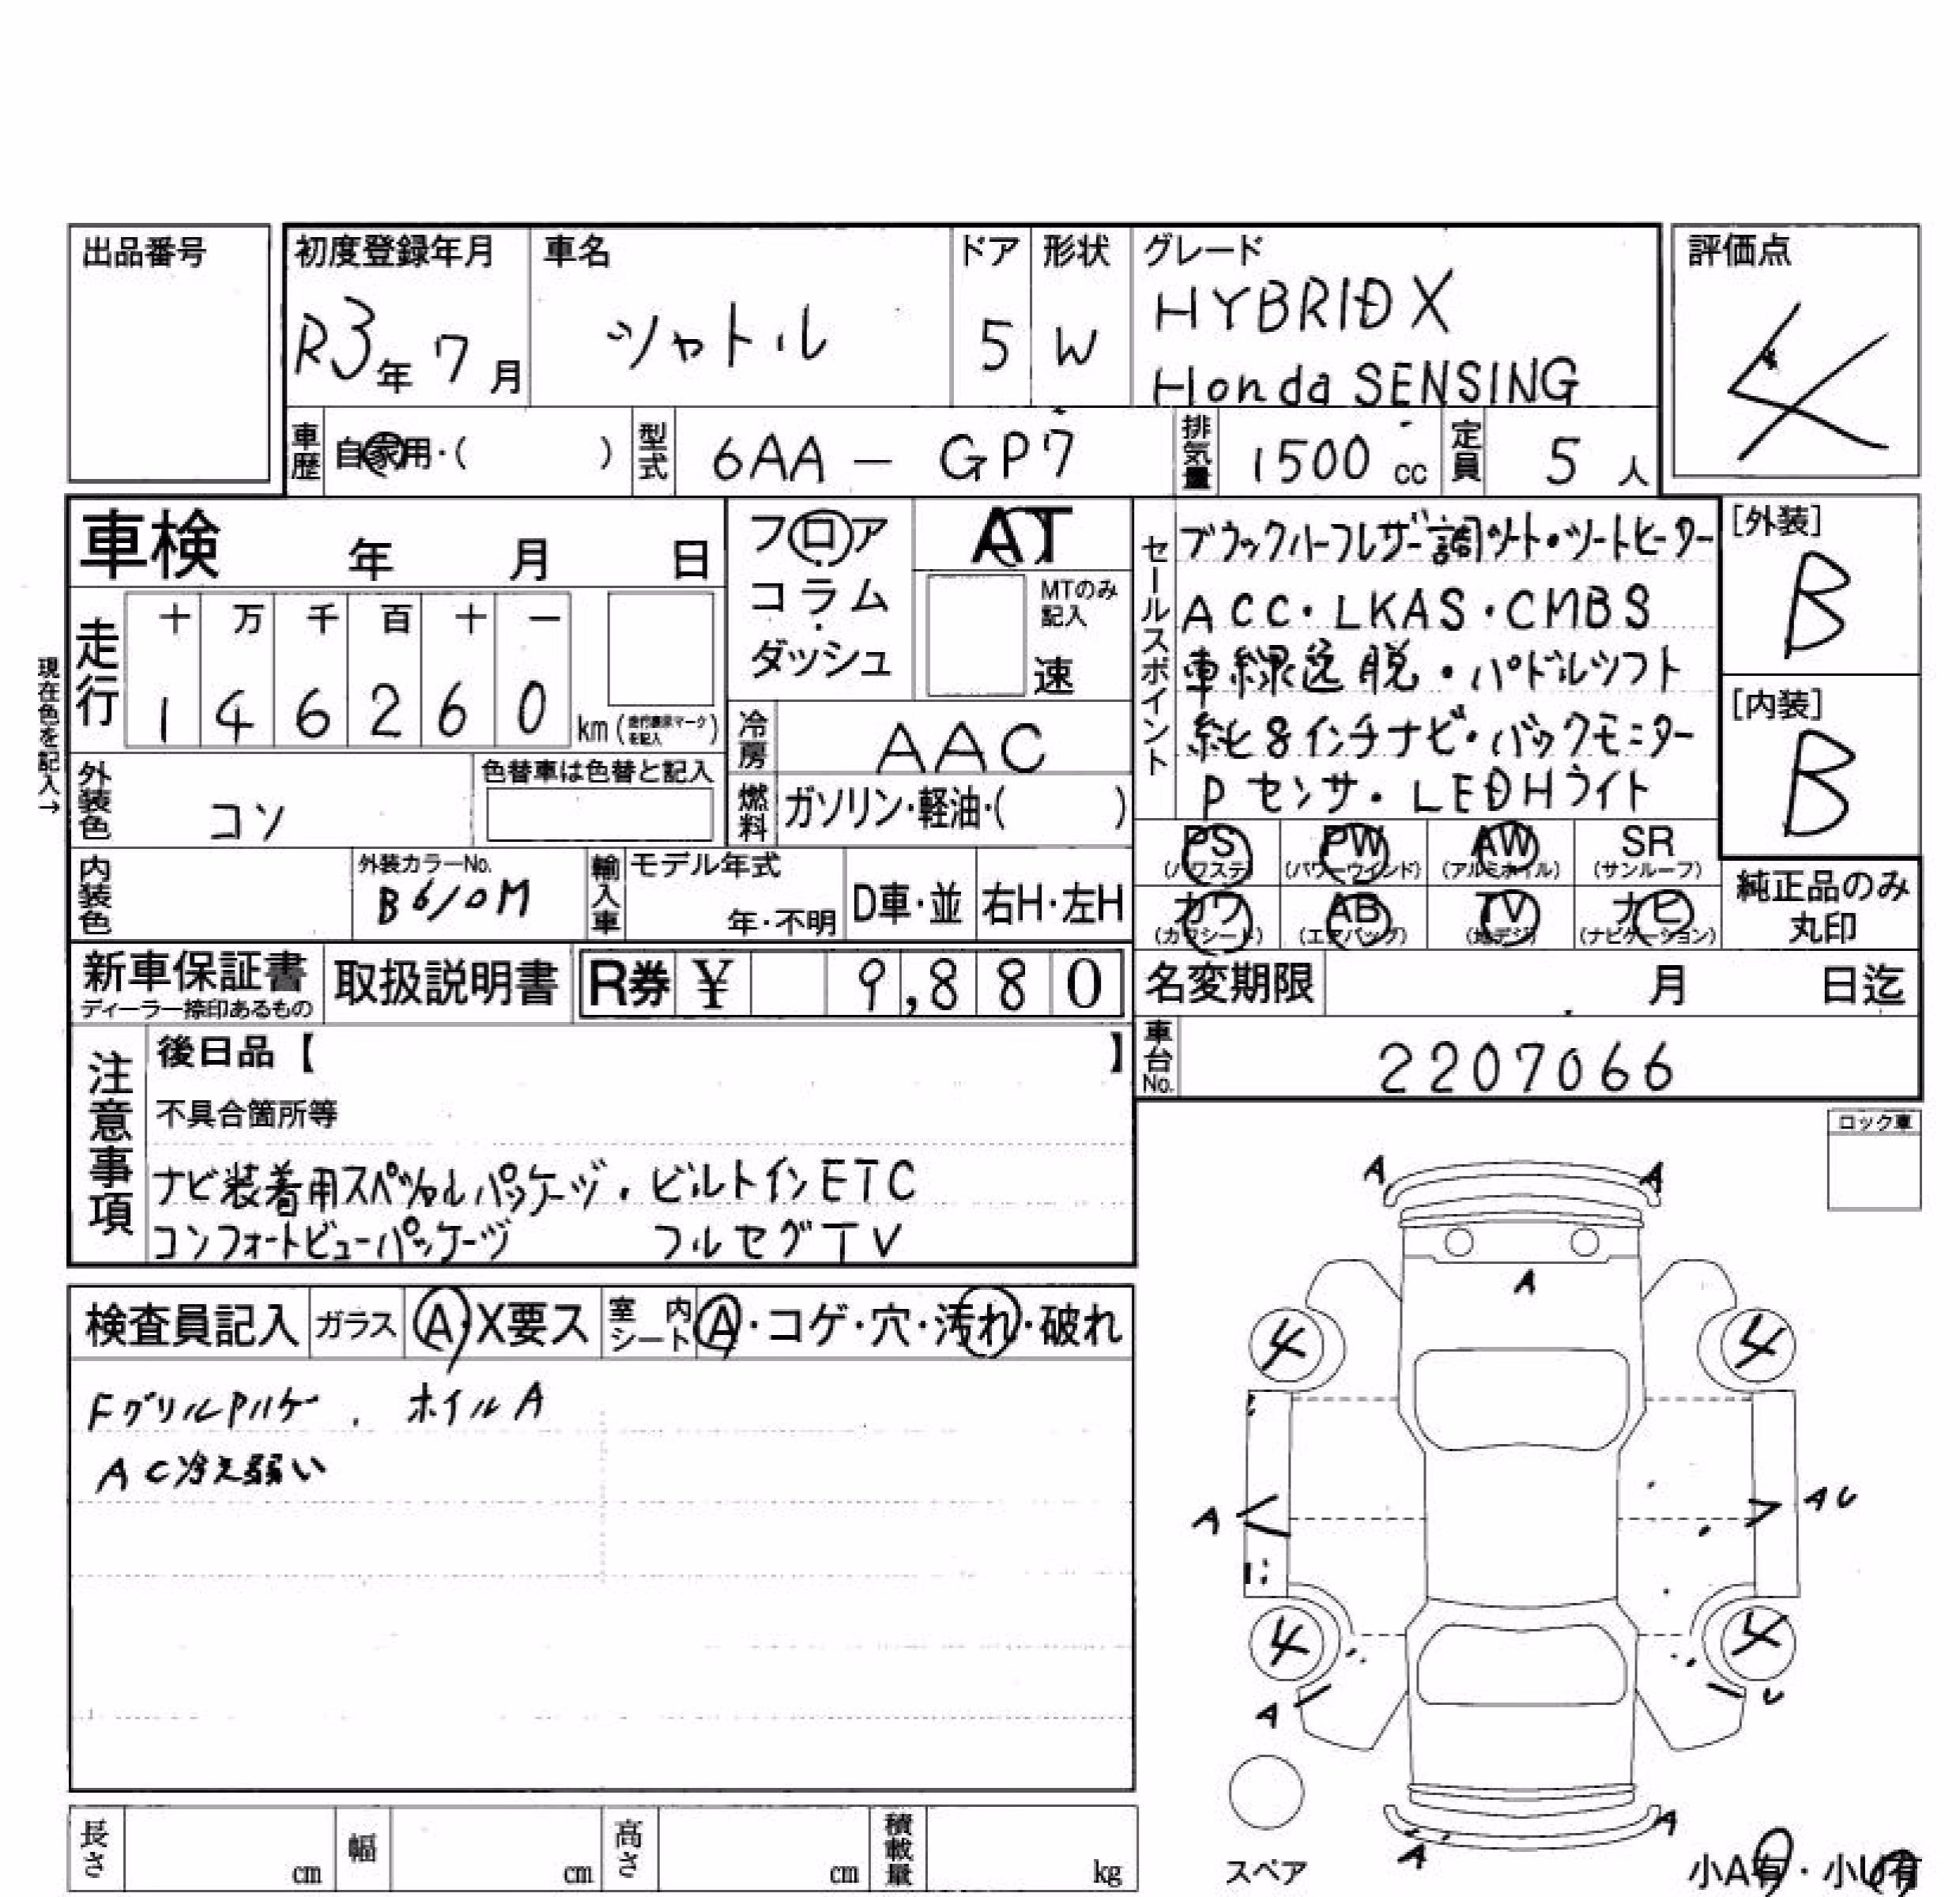 出品番号
初度登録年月 車名 ドア 形状 グレード 評価点
R3年 7月 シャトル 5 W HYBRID X
Honda SENSING
4
車歴 自家用・( ) 型式 6AA - GP7 排気量 1500 cc 定員 5 人
車検 年 月 日
フロア AT
コラム MTのみ記入
ダッシュ 速
セールスポイント
ブラックハーフレザー調シート・シートヒーター
ACC・LKAS・CMBS
車線逸脱・パドルシフト
純正8インチナビ・バックモニター
Pセンサ・LEDHライト
[外装]
B
[内装]
B
現在色を記入→
走行 十 万 千 百 十 一
1 4 6 2 6 0 km (走行表示マークを記入)
冷房 AAC
外装色 コン 色替車は色替と記入
燃料 ガソリン・軽油・( )
PS PW AW SR
(パワステ) (パワーウインド) (アルミホイル) (サンルーフ)
カワ AB TV ナビ
(カワシート) (エアバッグ) (地デジ) (ナビゲーション)
純正品のみ
丸印
内装色 外装カラーNo. 輸入車 モデル年式
B610M 年・不明 D車・並 右H・左H
新車保証書 取扱説明書 R券 ¥ 9,880
ディーラー捺印あるもの
名変期限 月 日迄
車台No. 2207066
注意事項
後日品【 】
不具合箇所等
ナビ装着用スペシャルパッケージ・ビルトインETC
コンフォートビューパッケージ フルセグTV
ロック車
検査員記入 ガラス A・X要ス 室内シート A・コゲ・穴・汚れ・破れ
Fグリル Pハゲ . ホイルA
AC冷え弱い
A A
A
4 4
A AU
4 4
A U
A
A
スペア
小A有・小U有
長さ cm 幅 cm 高さ cm 積載量 kg